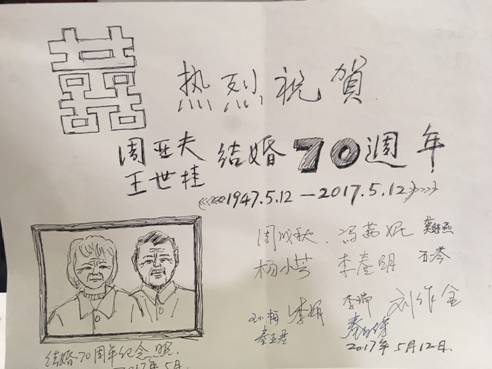 囍
热烈祝賀
周亚夫
王世桂
结婚70週年
1947.5.12—2017.5.12
周成秋 冯茜妮
杨小芸 李奎明 石岑
李娟 李瑞 刘作金
2017年5月12日.
结婚70周年纪念照.
2017年5月.